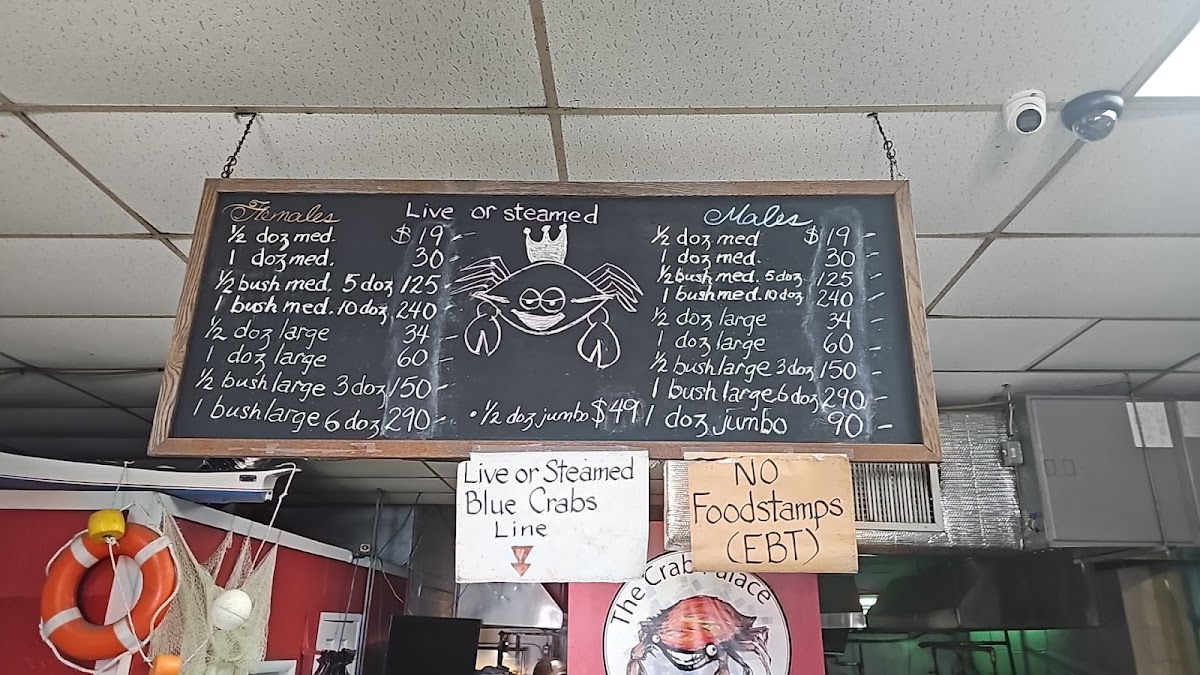 Females
Live or steamed
½ doz med. $19
1 doz med. 30
½ bush med. 5 doz 125
1 bush med. 10 doz 240
½ doz large 34
1 doz large 60
½ bush large 3 doz 150
1 bush large 6 doz 290
Males
½ doz med $19
1 doz med. 30
½ bush med. 5 doz 125
1 bush med. 10 doz 240
½ doz large 34
1 doz large 60
½ bush large 3 doz 150
1 bush large 6 doz 290
• ½ doz jumbo $49 1 doz jumbo 90
Live or Steamed
Blue Crabs
Line
NO
Foodstamps
(EBT)
The Crab Palace